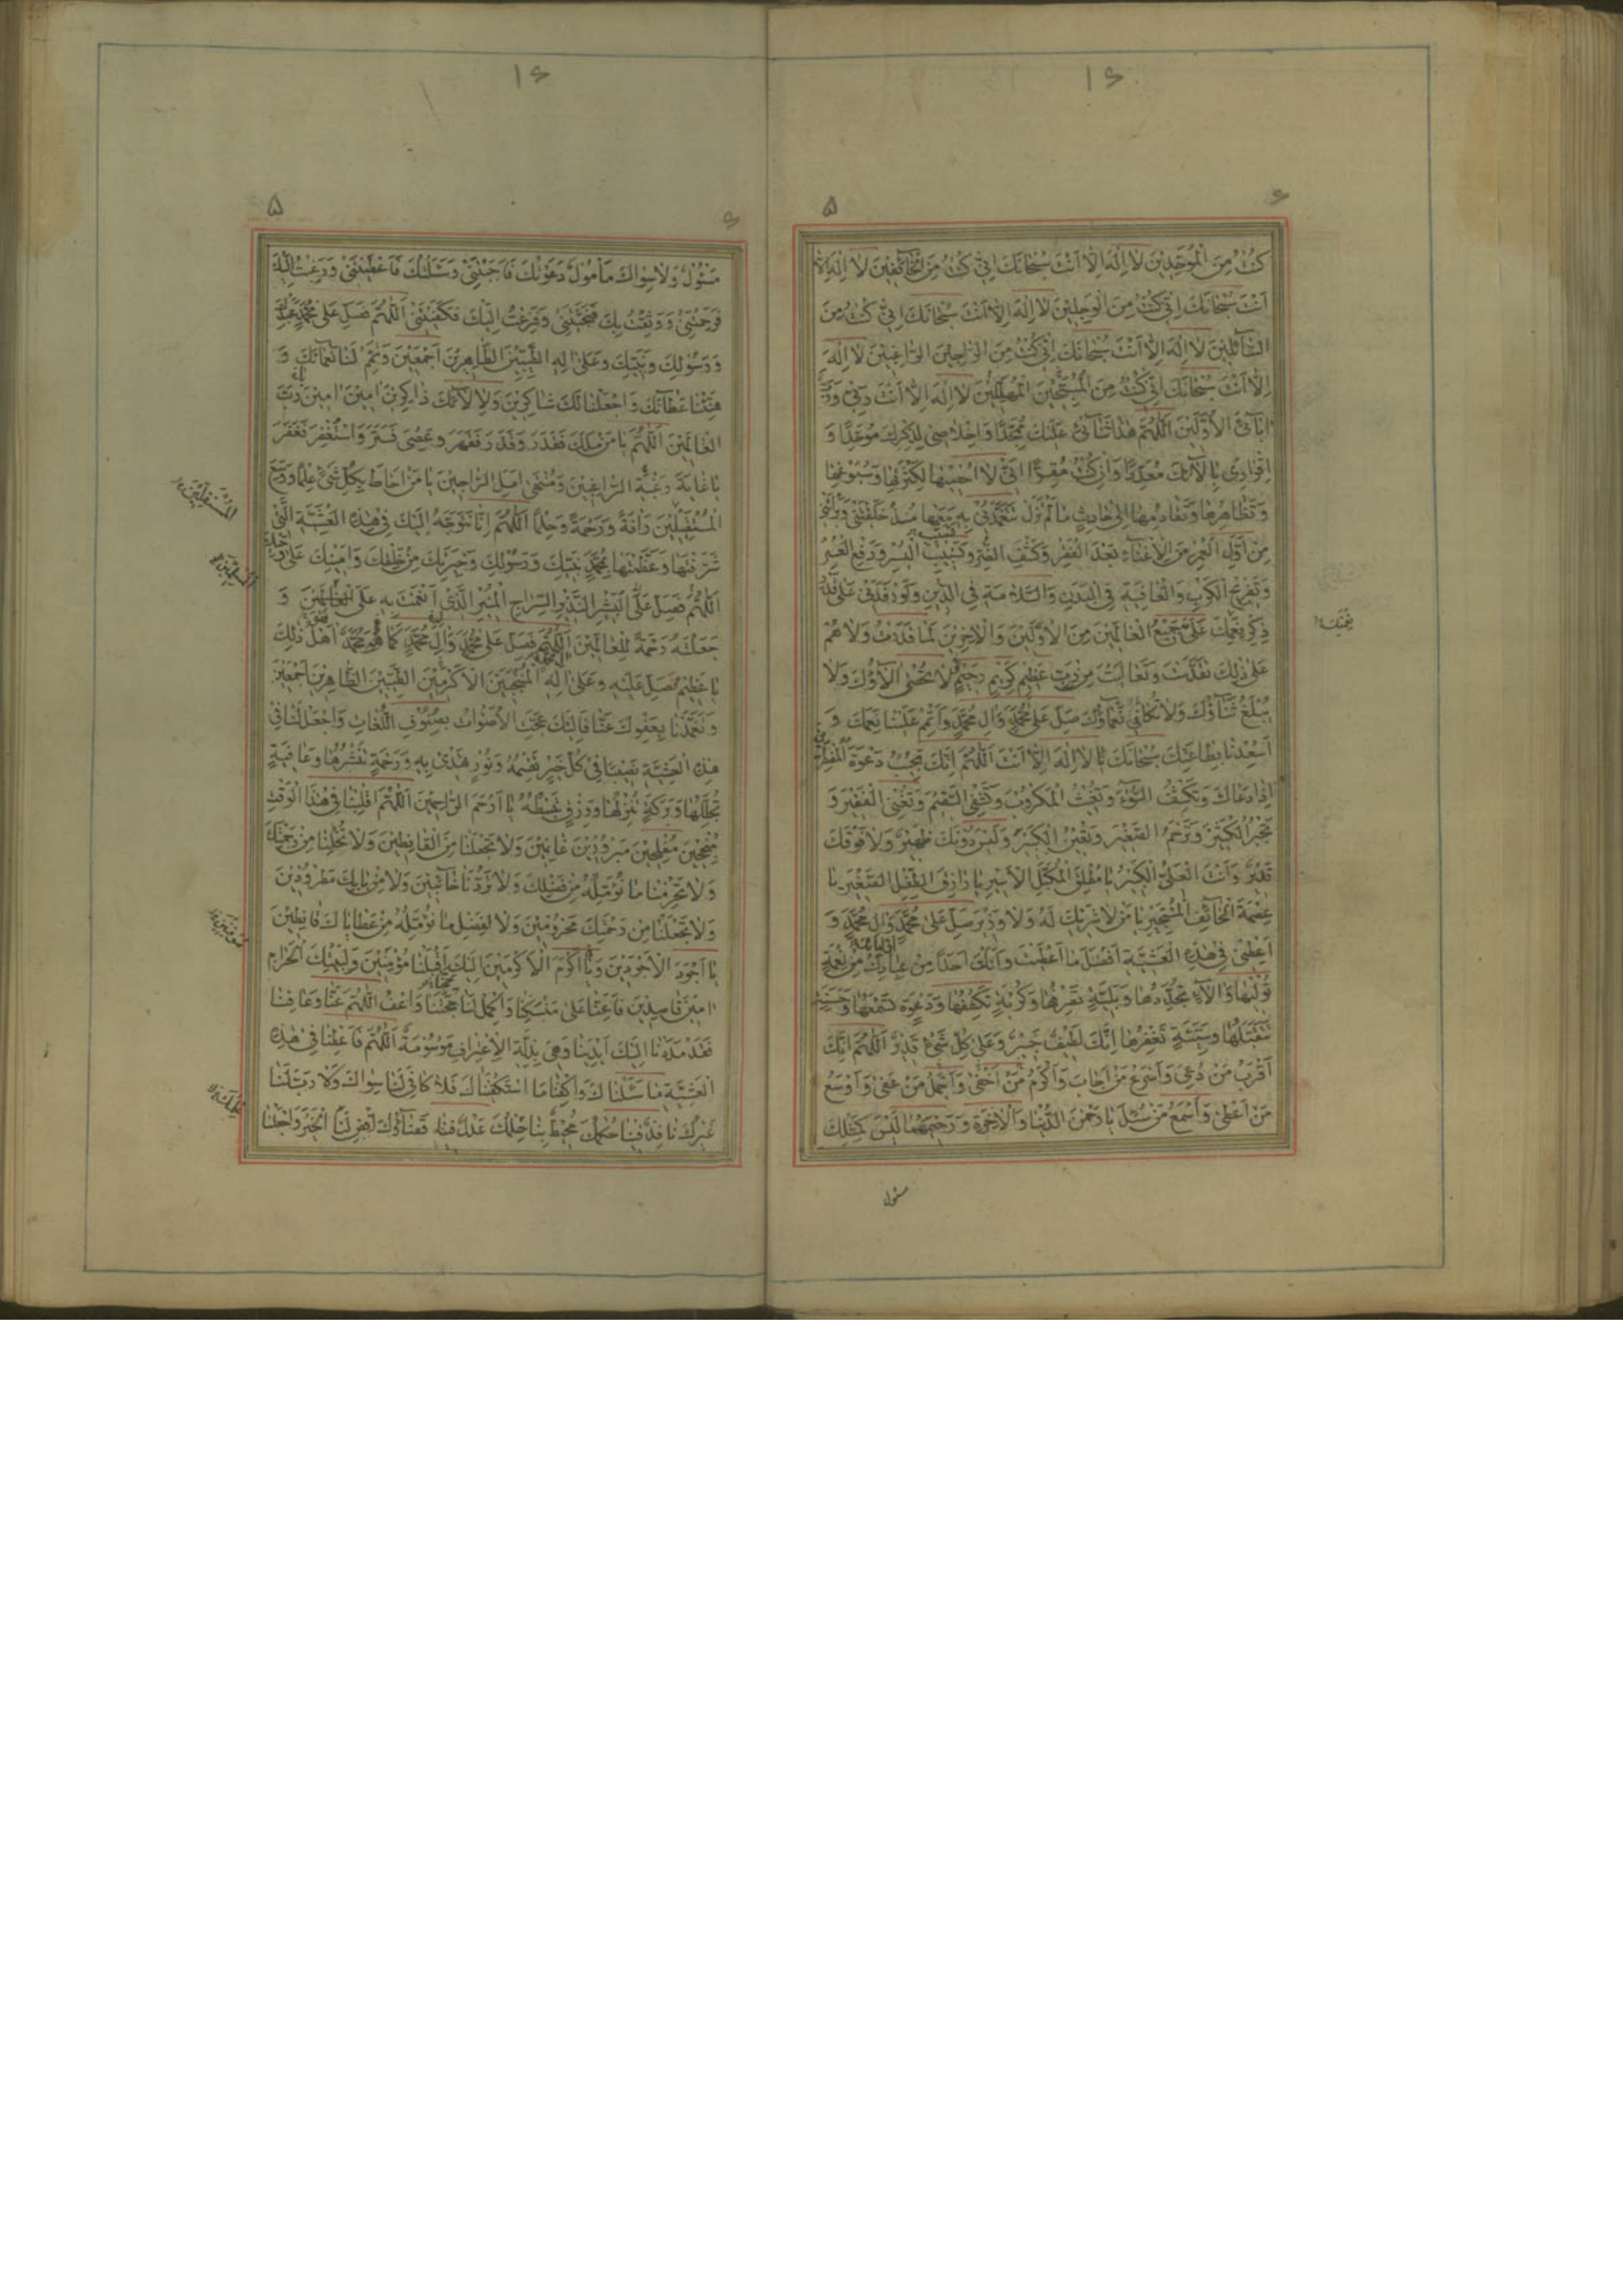 ۱۶
۶
۵
كُنْتُ مِنَ الْمُوَحِّدِينَ لا اِلٰهَ اِلاّ اَنْتَ سُبْحانَكَ اِنّي كُنْتُ مِنَ الْخائِفينَ لا اِلٰهَ اِلاّ
اَنْتَ سُبْحانَكَ اِنّي كُنْتُ مِنَ الْوَجِلينَ لا اِلٰهَ اِلاّ اَنْتَ سُبْحانَكَ اِنّي كُنْتُ مِنَ
السّآئِلينَ لا اِلٰهَ اِلاّ اَنْتَ سُبْحانَكَ اِنّي كُنْتُ مِنَ الرّاجينَ الرّاغِبينَ لا اِلٰهَ
اِلاّ اَنْتَ سُبْحانَكَ اِنّي كُنْتُ مِنَ الْمُسَبِّحينَ الْمُهَلِّلينَ لا اِلٰهَ اِلاّ اَنْتَ رَبّي وَرَبُّ
ابآئِيَ الْاَوَّلينَ اَللّٰهُمَّ هٰذا ثَنآئي عَلَيْكَ مُمَجِّدًا وَاِخْلاصي لِذِكْرِكَ مُوَحِّدًا وَ
اِقْراري بِالائِكَ مُعَدِّدًا وَاِنْ كُنْتُ مُقِرًّا اَنّي لا اُحْصيها لِكَثْرَتِها وَسُبُوغِها
وَتَظاهُرِها وَتَقادُمِها اِلى حادِثٍ ما لَمْ تَزَلْ تَتَعَمَّدُني بِهِ مَعَها مُنْذُ خَلَقْتَني وَبَرَاْتَني
مِنْ اَوَّلِ الْعُمُرِ مِنَ الْاِغْنآءِ بَعْدَ الْفَقْرِ وَكَشْفِ الضُّرِّ وَتَسْبيبِ الْيُسْرِ وَدَفْعِ الْعُسْرِ
وَتَفْريجِ الْكَرْبِ وَالْعافِيَةِ فِي الْبَدَنِ وَالسَّلامَةِ فِي الدّينِ وَلَوْ رَفَدَني عَلى قَدْرِ
ذِكْرِ نِعَمِكَ عَلَيَّ جَميعُ الْعالَمينَ مِنَ الْاَوَّلينَ وَالْاخِرينَ لَما قَدَرْتُ وَلا هُمْ
عَلى ذٰلِكَ تَقَدَّسْتَ وَتَعالَيْتَ مِنْ رَبٍّ عَظيمٍ كَريمٍ رَحيمٍ لا تُحْصى الاؤُكَ وَلا
يُبْلَغُ ثَنآؤُكَ وَلا تُكافى نَعْمآؤُكَ صَلِّ عَلى مُحَمَّدٍ وَالِ مُحَمَّدٍ وَاَتْمِمْ عَلَيْنا نِعَمَكَ وَ
اَسْعِدْنا بِطاعَتِكَ سُبْحانَكَ يا لا اِلٰهَ اِلاّ اَنْتَ اَللّٰهُمَّ اِنَّكَ تُجيبُ دَعْوَةَ الْمُضْطَرِّ
اِذا دَعاكَ وَتَكْشِفُ السُّوءَ وَتُغيثُ الْمَكْرُوبَ وَتَشْفِي السَّقيمَ وَتُغْنِي الْفَقيرَ وَ
تَجْبُرُ الْكَسيرَ وَتَرْحَمُ الصَّغيرَ وَتُعينُ الْكَبيرَ وَلَيْسَ دُونَكَ ظَهيرٌ وَلا فَوْقَكَ
قَديرٌ وَاَنْتَ الْعَلِيُّ الْكَبيرُ يا مُطْلِقَ الْمُكَبَّلِ الْاَسيرِ يا رازِقَ الطِّفْلِ الصَّغيرِ يا
عِصْمَةَ الْخآئِفِ الْمُسْتَجيرِ يا مَنْ لا شَريكَ لَهُ وَلا وَزيرَ صَلِّ عَلى مُحَمَّدٍ وَالِ مُحَمَّدٍ وَ
اَعْطِني في هٰذِهِ الْعَشِيَّةِ اَفْضَلَ ما اَعْطَيْتَ وَاَنَلْتَ اَحَدًا مِنْ عِبادِكَ مِنْ نِعْمَةٍ
تُوليها وَالاءٍ تُجَدِّدُها وَبَلِيَّةٍ تَصْرِفُها وَكُرْبَةٍ تَكْشِفُها وَدَعْوَةٍ تَسْمَعُها وَحَسَنَةٍ
تَتَقَبَّلُها وَسَيِّئَةٍ تَغْفِرُها اِنَّكَ لَطيفٌ خَبيرٌ وَعَلى كُلِّ شَيْءٍ قَديرٌ اَللّٰهُمَّ اِنَّكَ
اَقْرَبُ مَنْ دُعِيَ وَاَسْرَعُ مَنْ اَجابَ وَاَكْرَمُ مَنْ عَفى وَاَوْسَعُ
مَنْ اَعْطى وَاَسْمَعُ مَنْ سُئِلَ يا رَحْمٰنَ الدُّنْيا وَالْاخِرَةِ وَرَحيمَهُما لَيْسَ كَمِثْلِكَ
مسئول
نِعَمِكَ
۱۶
۶
۵
مَسْئُولٌ وَلا سِواكَ مَاْمُولٌ دَعَوْتُكَ فَاَجَبْتَني وَسَئَلْتُكَ فَاَعْطَيْتَني وَرَغِبْتُ اِلَيْكَ
فَرَحِمْتَني وَوَثِقْتُ بِكَ فَنَجَّيْتَني وَفَزِعْتُ اِلَيْكَ فَكَفَيْتَني اَللّٰهُمَّ فَصَلِّ عَلى مُحَمَّدٍ عَبْدِكَ
وَرَسُولِكَ وَنَبِيِّكَ وَعَلى الِهِ الطَّيِّبينَ الطّاهِرينَ اَجْمَعينَ وَتَمِّمْ لَنا نَعْمآئَكَ وَ
هَنِّئْنا عَطآئَكَ وَاجْعَلْنا لَكَ شاكِرينَ وَلِالائِكَ ذاكِرينَ امينَ امينَ رَبَّ
الْعالَمينَ اَللّٰهُمَّ يا مَنْ مَلَكَ فَقَدَرَ وَقَدَرَ فَقَهَرَ وَعُصِيَ فَسَتَرَ وَاسْتُغْفِرَ فَغَفَرَ
يا غايَةَ رَغْبَةِ الرّاغِبينَ وَمُنْتَهى اَمَلِ الرّاجينَ يا مَنْ اَحاطَ بِكُلِّ شَيْءٍ عِلْمًا وَوَسِعَ
الْمُسْتَقيلينَ رَاْفَةً وَرَحْمَةً وَحِلْمًا اَللّٰهُمَّ اِنّا نَتَوَجَّهُ اِلَيْكَ في هٰذِهِ الْعَشِيَّةِ الَّتي
شَرَّفْتَها وَعَظَّمْتَها بِمُحَمَّدٍ نَبِيِّكَ وَرَسُولِكَ وَخِيَرَتِكَ مِنْ خَلْقِكَ وَاَمينِكَ عَلى وَحْيِكَ
اَللّٰهُمَّ فَصَلِّ عَلَى الْبَشيرِ النَّذيرِ السِّراجِ الْمُنيرِ الَّذي اَنْعَمْتَ بِهِ عَلَى وَ
جَعَلْتَهُ رَحْمَةً لِلْعالَمينَ اَللّٰهُمَّ فَصَلِّ عَلى مُحَمَّدٍ وَالِ مُحَمَّدٍ كَما مُحَمَّدٌ اَهْلُ ذٰلِكَ
يا عَظيمُ فَصَلِّ عَلَيْهِ وَعَلى الِهِ الْمُنْتَجَبينَ الْاَكْرَمينَ الطَّيِّبينَ الطّاهِرينَ اَجْمَعينَ
وَتَغَمَّدْنا بِعَفْوِكَ عَنّا فَاِلَيْكَ عَجَّتِ الْاَصْواتُ بِصُنُوفِ اللُّغاتِ وَاجْعَلْ لَنا في
هٰذِهِ الْعَشِيَّةِ نَصيبًا في كُلِّ خَيْرٍ تَقْسِمُهُ وَنُورٍ تَهْدي بِهِ وَرَحْمَةٍ تَنْشُرُها وَعافِيَةٍ
تُجَلِّلُها وَبَرَكَةٍ تُنْزِلُها وَرِزْقٍ تَبْسُطُهُ يا اَرْحَمَ الرّاحِمينَ اَللّٰهُمَّ اقْلِبْنا في هٰذَا الْوَقْتِ
مُنْجِحينَ مُفْلِحينَ مَبْرُورينَ غانِمينَ وَلا تَجْعَلْنا مِنَ الْقانِطينَ وَلا تُخْلِنا مِنْ رَحْمَتِكَ
وَلا تَحْرِمْنا ما نُؤَمِّلُهُ مِنْ فَضْلِكَ وَلا تَرُدَّنا خآئِبينَ وَلا مِنْ بابِكَ مَطْرُودينَ
وَلا تَجْعَلْنا مِنْ رَحْمَتِكَ مَحْرُومينَ وَلا لِفَضْلِ ما نُؤَمِّلُهُ مِنْ عَطاياكَ قانِطينَ
يا اَجْوَدَ الْاَجْوَدينَ وَيا اَكْرَمَ الْاَكْرَمينَ اِلَيْكَ اَقْبَلْنا مُؤْمِنينَ وَلِبَيْتِكَ الْحَرامِ
امّينَ قاصِدينَ فَاَعِنّا عَلى مَنْسَكِنا وَاَكْمِلْ لَنا حَجَّنا وَاعْفُ اللّٰهُمَّ عَنّا وَعافِنا
فَقَدْ مَدَدْنا اِلَيْكَ اَيْدِيَنا وَهِيَ بِذِلَّةِ الْاِعْتِرافِ مَوْسُومَةٌ اَللّٰهُمَّ فَاَعْطِنا في هٰذِهِ
الْعَشِيَّةِ ما سَئَلْناكَ وَاكْفِنا مَا اسْتَكْفَيْناكَ فَلا كافِيَ لَنا سِواكَ وَلا رَبَّ لَنا
غَيْرُكَ نافِذٌ فينا حُكْمُكَ مُحيطٌ بِنا عِلْمُكَ عَدْلٌ فينا قَضآؤُكَ اِقْضِ لَنَا الْخَيْرَ وَاجْعَلْنا
الْمُسْتَقيلينَ